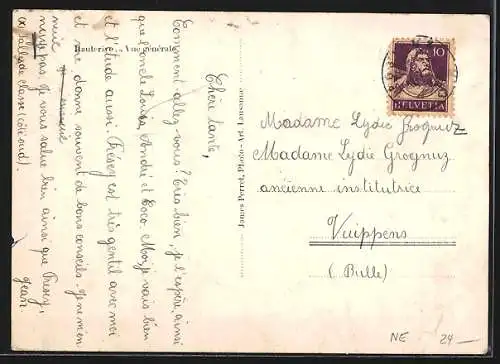 Hauterive. - Vue générale
Chère tante,
Comment allez-vous? Très bien, je l'espère, ainsi
que l'oncle Louis, André et Coco. Moi, je vais bien
et l'étude aussi. Présey est très gentil avec moi
et me donne souvent de bons conseils. Je ne m'en
nuie pas. Je vous salue bien ainsi que Présey,
Jean
James Perret, Photo-Art, Lausanne
10
HELVETIA
Madame Lydie Grognuz
Madame Lydie Grognuz
ancienne institutrice
Vuippens
(Bulle)
NE 24 —